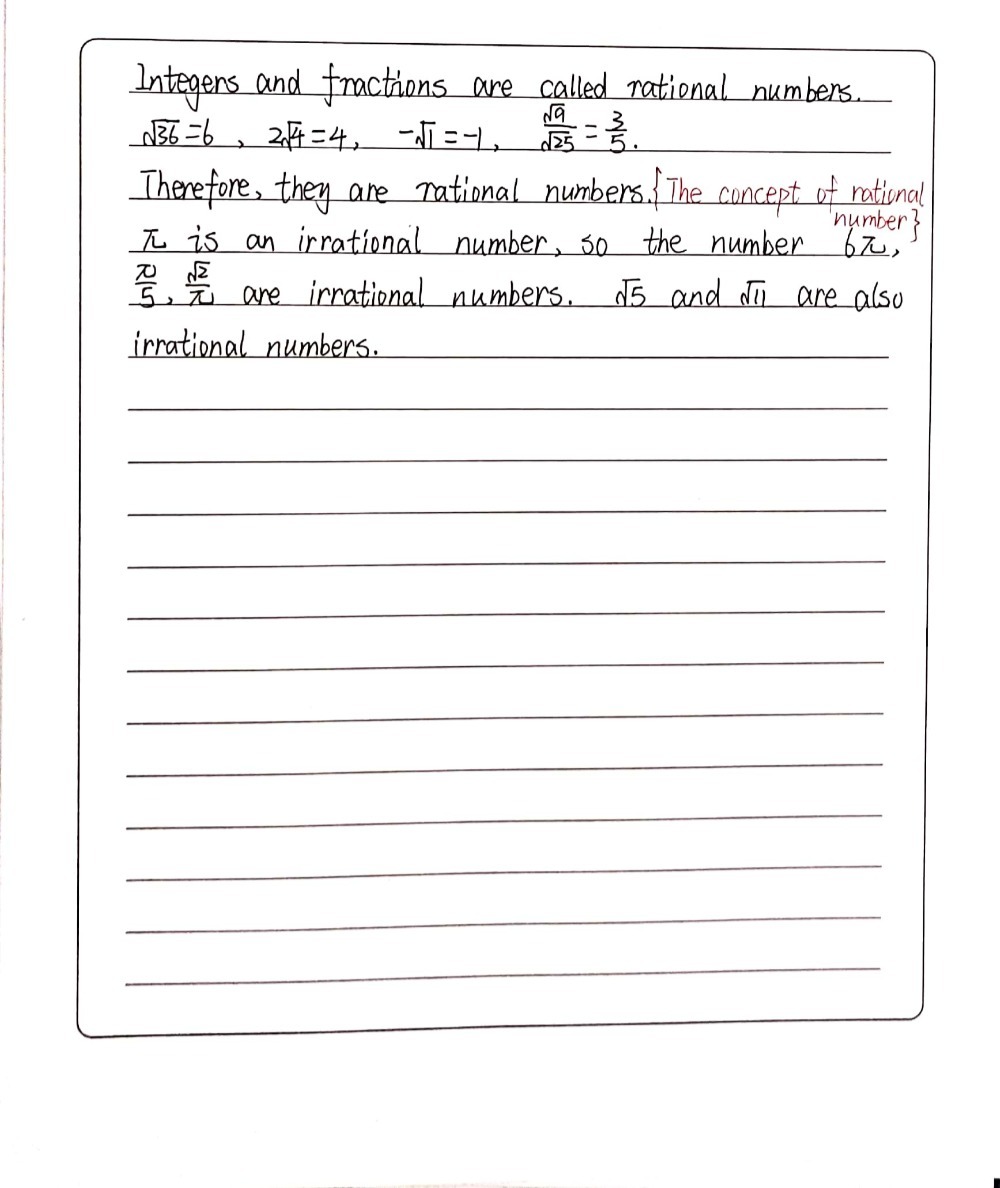 Integers and fractions are called rational numbers.
√36=6, 2√4=4, -√1=-1, √9/√25=3/5.
Therefore, they are rational numbers.{The concept of rational number}
π is an irrational number, so the number 6π,
π/5, √2/π are irrational numbers. √5 and √11 are also
irrational numbers.